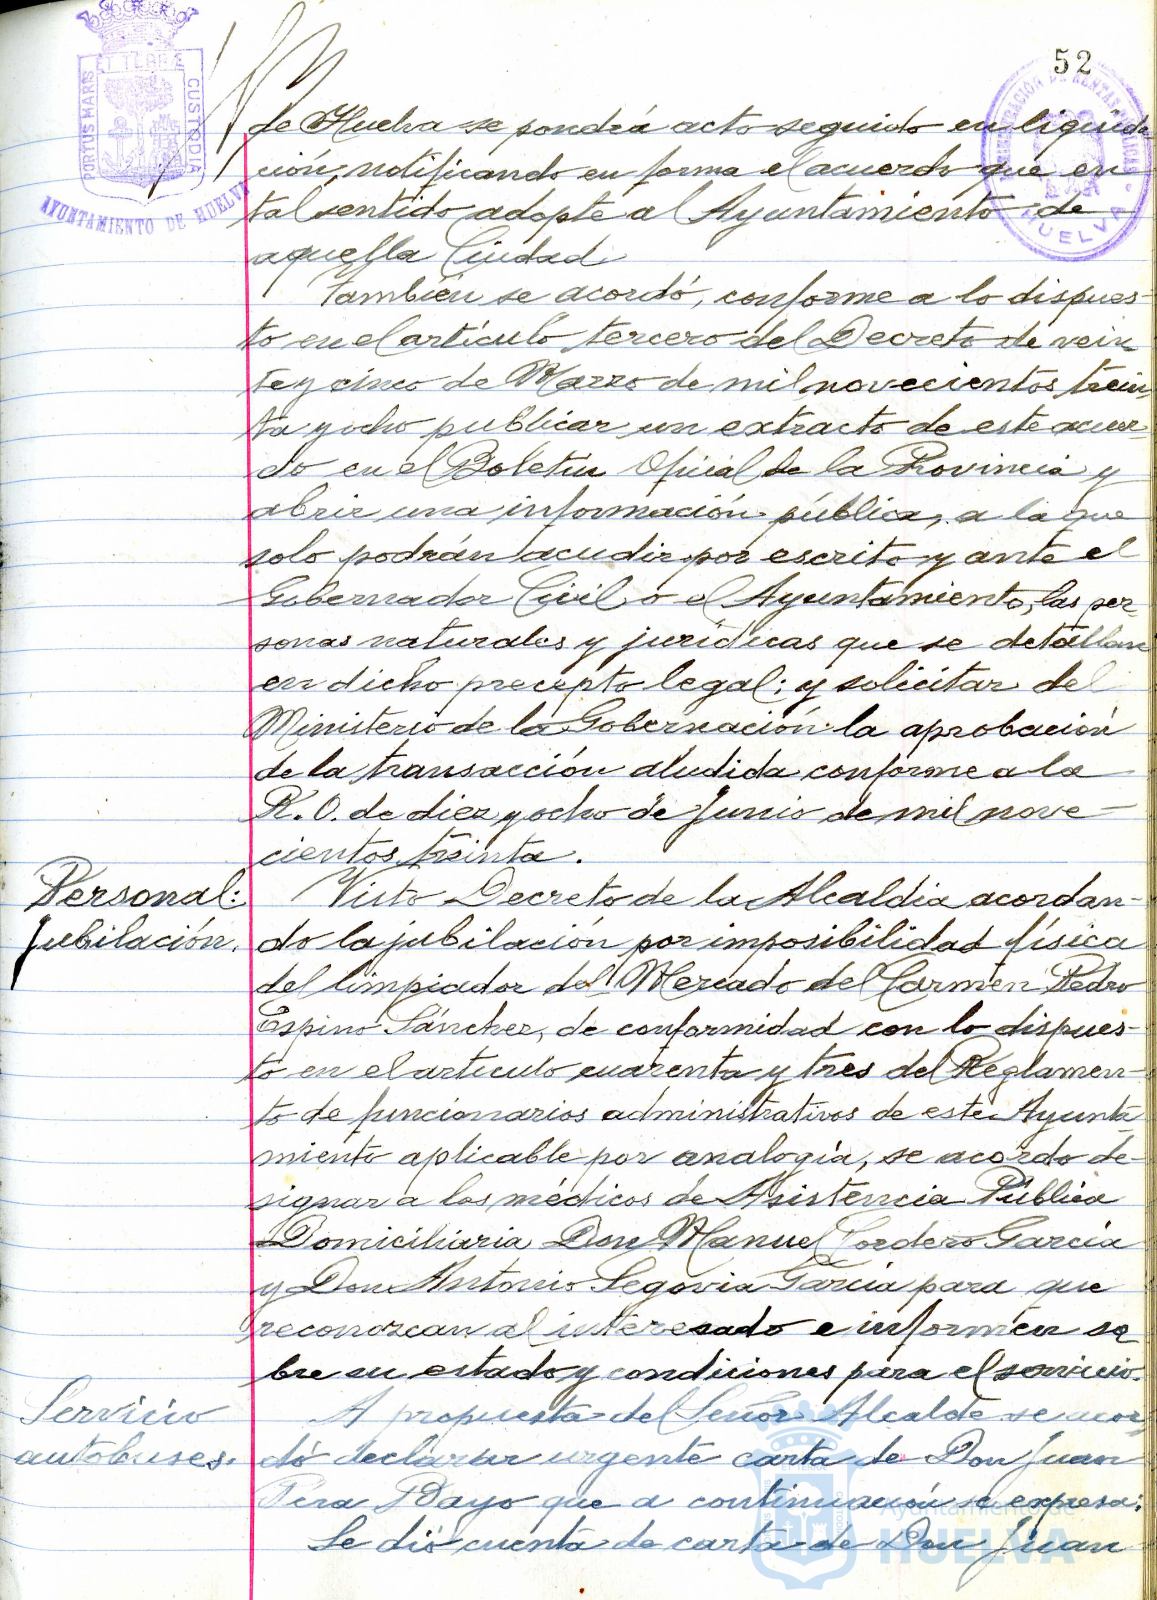 52
PORTUS MARIS ET TERRÆ CUSTODIA
AYUNTAMIENTO DE HUELVA
HUELVA
de Huelva se pondrá acto seguido en liquida
ción, notificando en forma el acuerdo que en
tal sentido adopte al Ayuntamiento de
aquella Ciudad
También se acordó, conforme a lo dispues-
to en el artículo tercero del Decreto de vein
te y cinco de Marzo de mil novecientos trein
ta y ocho publicar un extracto de este acuer-
do en el Boletín Oficial de la Provincia y
abrir una información pública, a la que
solo podrán acudir por escrito y ante el
Gobernador Civil o el Ayuntamiento, las per-
sonas naturales y jurídicas que se detallan
en dicho precepto legal; y solicitar del
Ministerio de la Gobernación la aprobación
de la transacción aludida conforme a la
R. O. de diez y ocho de Junio de mil nove-
cientos treinta.
Personal:
Jubilación.
Visto Decreto de la Alcaldia acordan-
do la jubilación por imposibilidad física
del limpiador del Mercado del Carmen Pedro
Espino Sánchez, de conformidad con lo dispues-
to en el artículo cuarenta y tres del Reglamen-
to de funcionarios administrativos de este Ayunta
miento aplicable por analogía, se acordo de-
signar a los médicos de Asistencia Pública
Domiciliaria Don Manuel Cordero García
y Don Antonio Segovia García para que
reconozcan al interesado e informen so
bre su estado y condiciones para el servicio.
Servicio
autobuses.
A propuesta del Señor Alcalde se acor
dó declarar urgente carta de Don Juan
Bayo que a continuación se expresa:
Se dió cuenta de carta de Don Juan
Ayuntamiento de
HUELVA